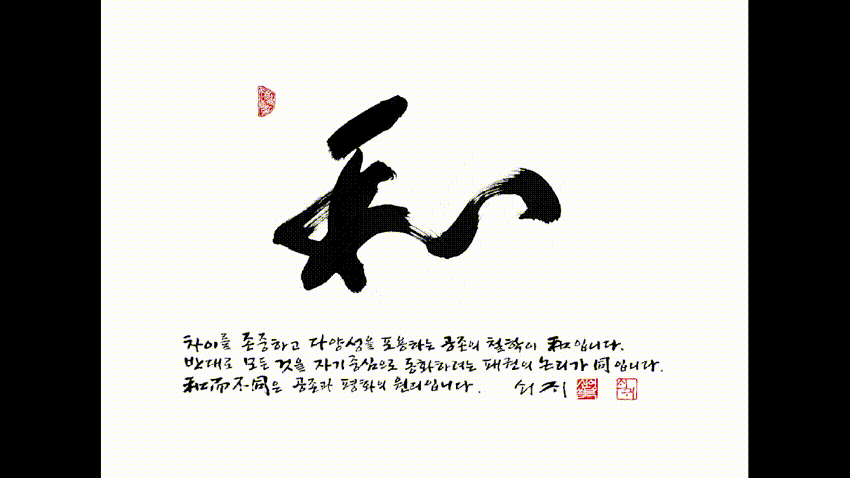 和
차이를 존중하고 다양성을 포용하는 공존의 철학이 和입니다.
반대로 모든 것을 자기중심으로 동화하려는 패권의 논리가 同입니다.
和而不同은 공존과 평화의 원리입니다. 쇠귀